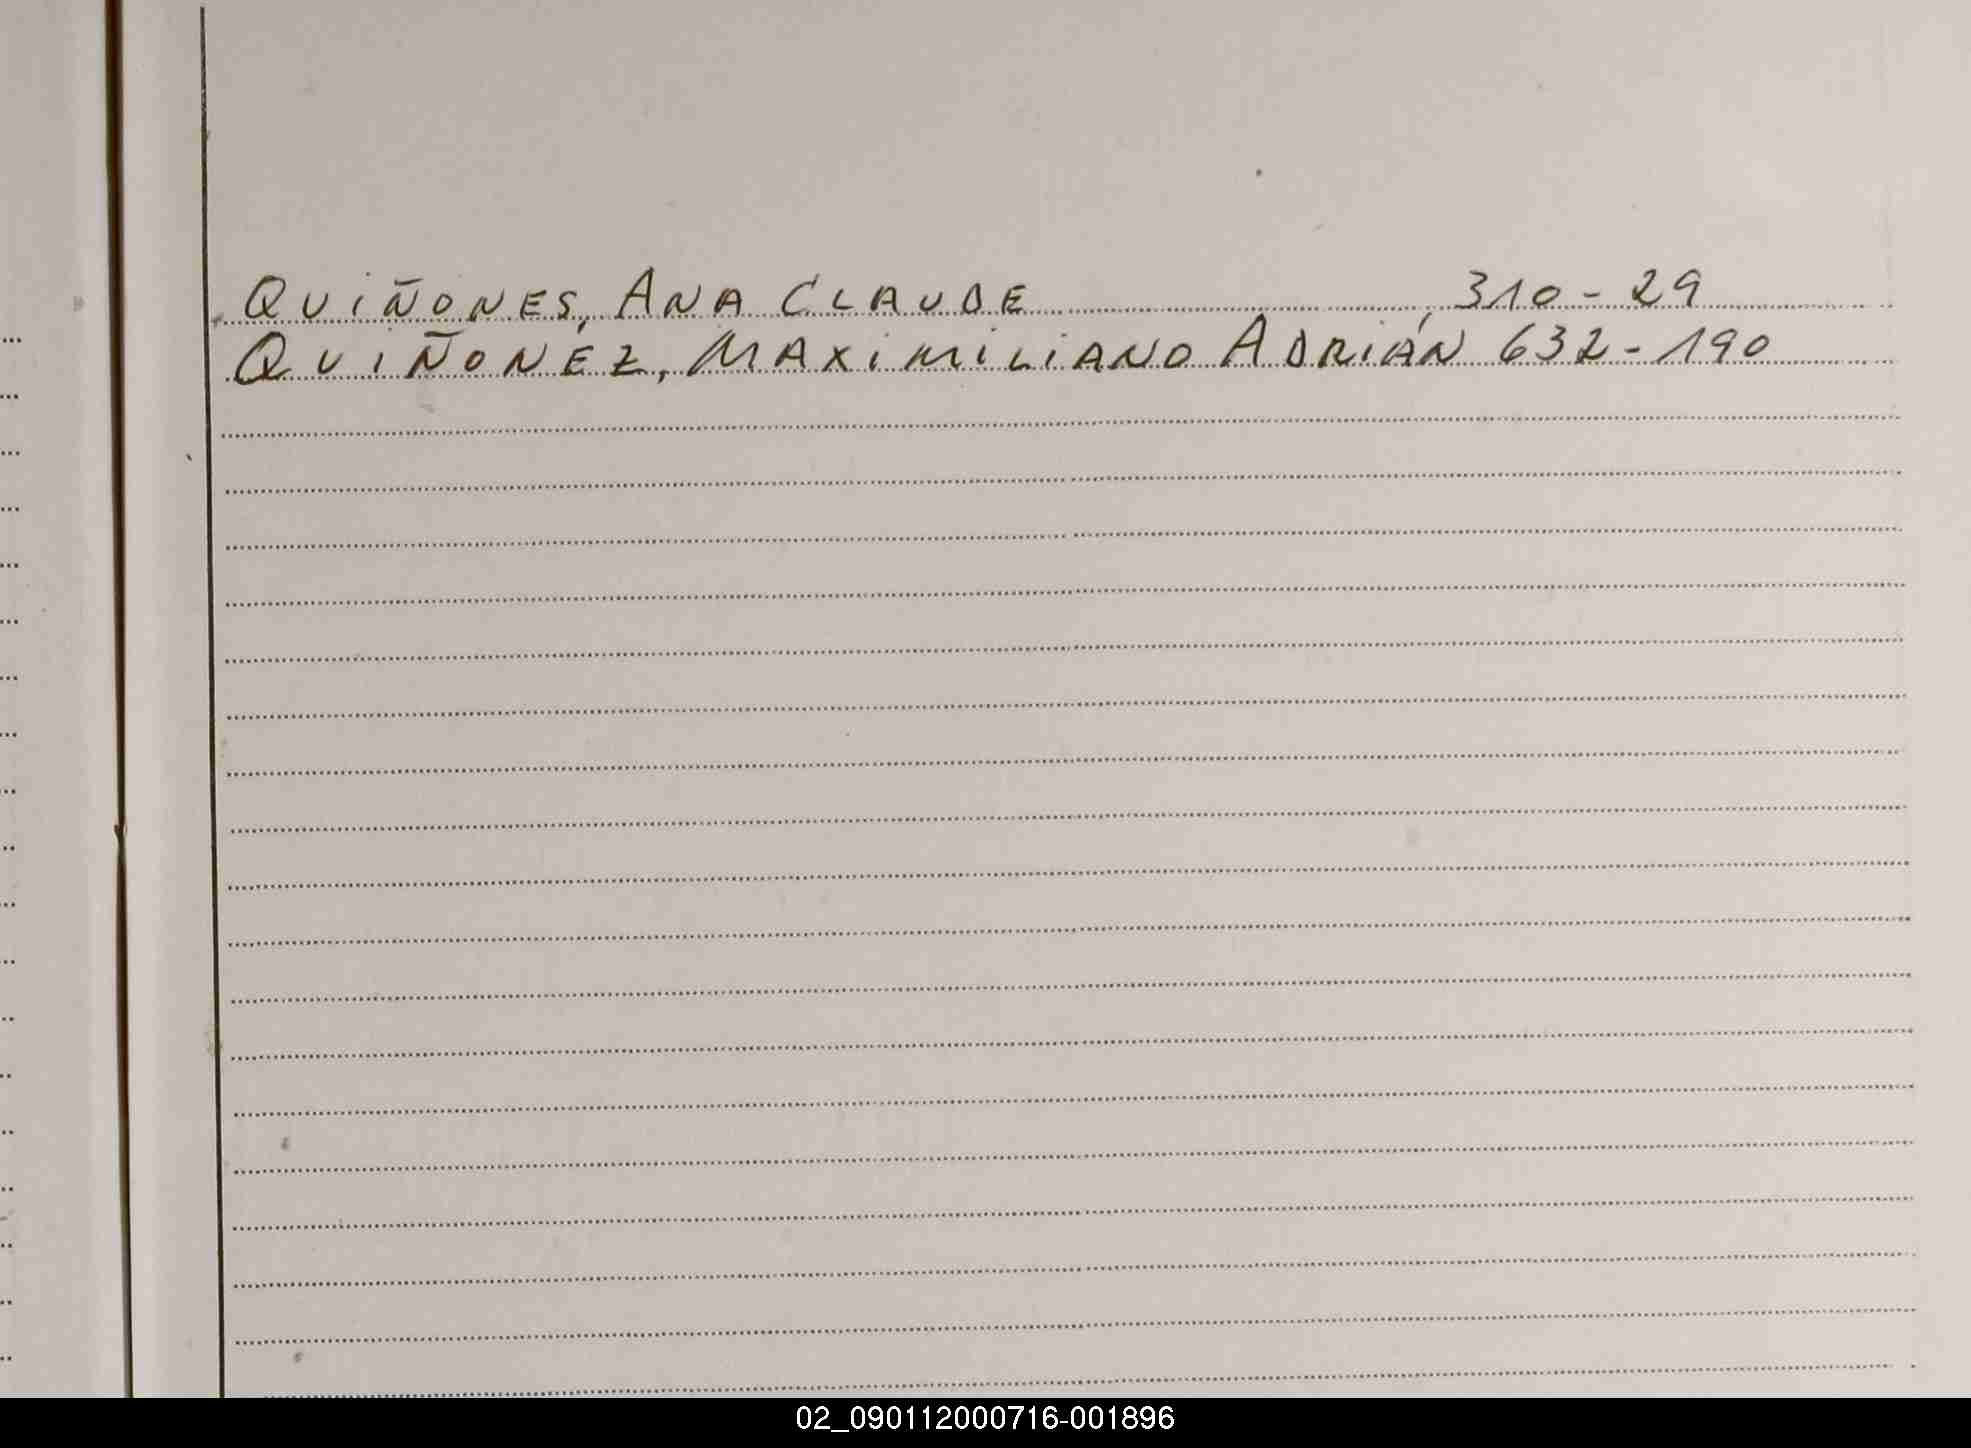 QUIÑONES, ANA CLAUDE 310-29
QUIÑONEZ, MAXIMILIANO ADRIÁN 632-190
02_090112000716-001896